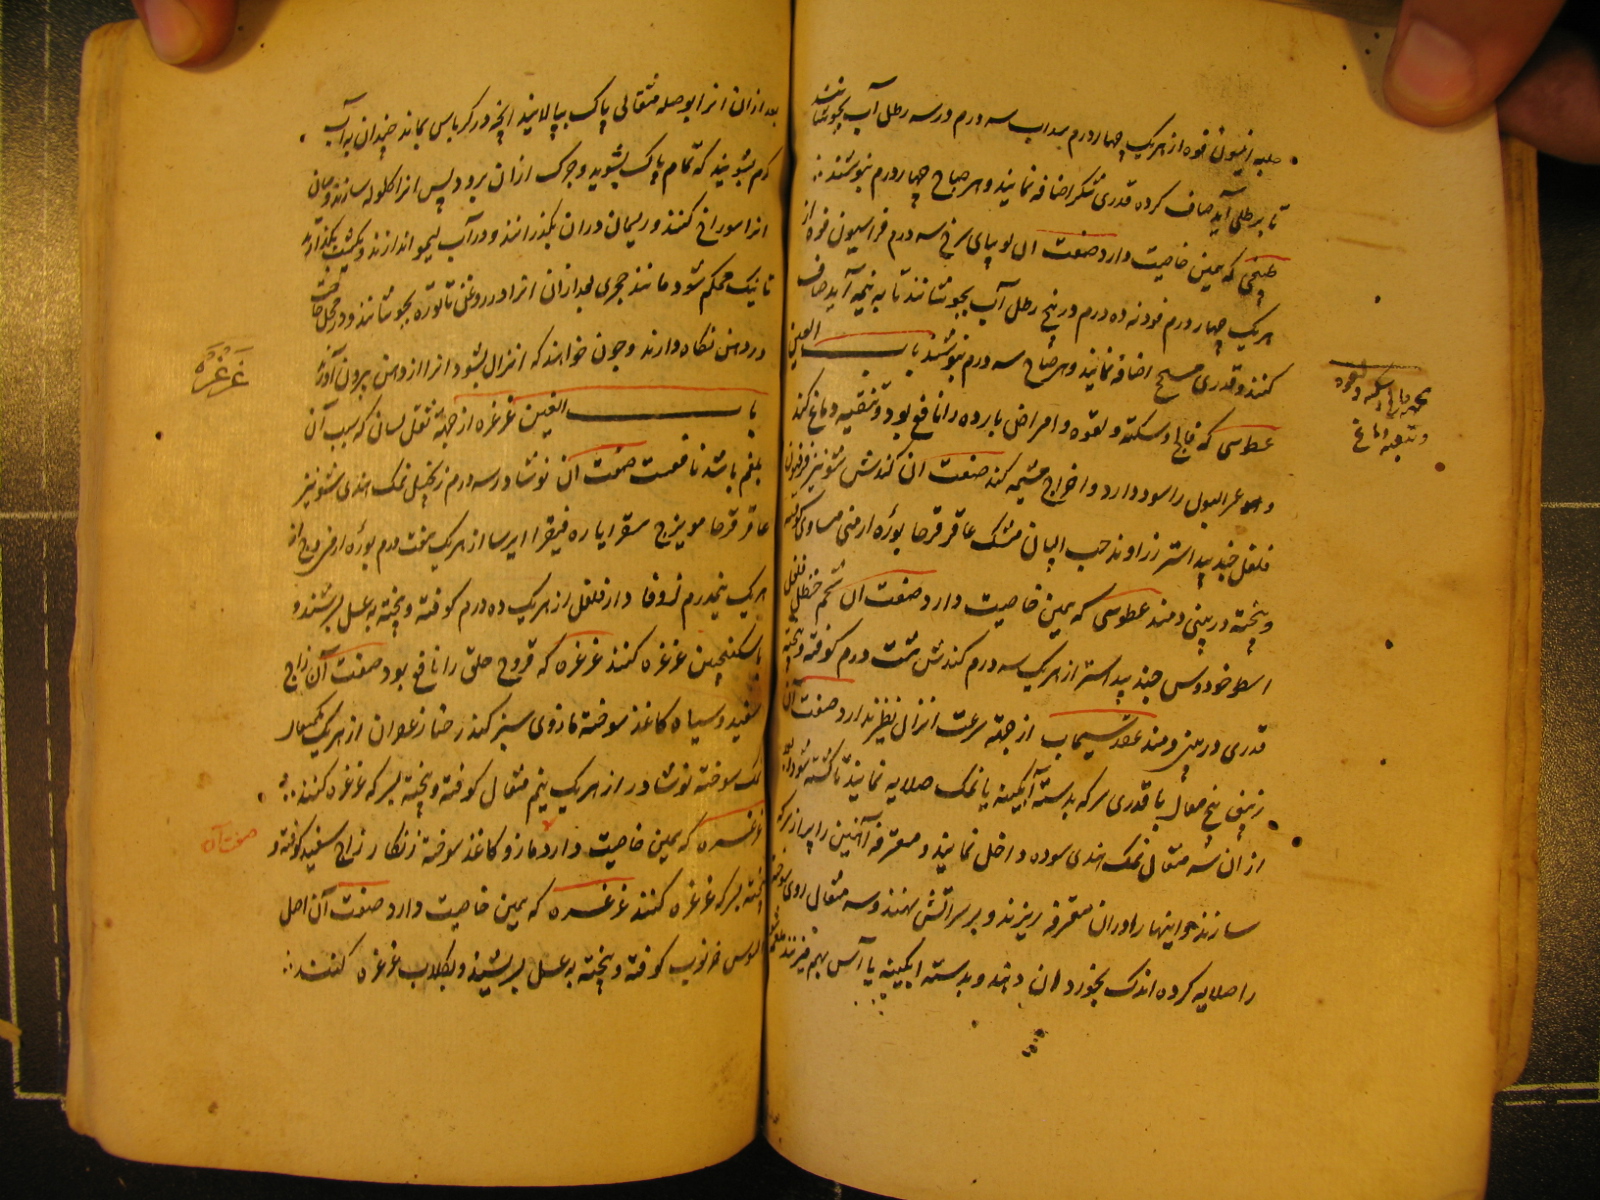 حلبه انیسون فوه از هریک چهار درم سداب سه درم در سه رطل آب بجوشانند
تا برطلی آید صاف کرده قدری شکر اضافه نمایند و هر صباح چهار درم بنوشند
طبخی که همین خاصیت دارد صنعت ان لوبیای سرخ سه درم فراسیون فوه از
هریک چهار درم فودنه ده درم در پنج رطل آب بجوشانند تا به نیمه آید صاف
کنند و قدری اضافه نمایند و هر صباح سه درم بنوشند باب العین
عطوسی که فالج و سکته و لقوه و امراض بارده را نافع بود و تنقیه دماغ کند
و عسر البول را سود دارد و اخراج مشیمه کند صنعت ان کندش شونیز فرفیون
فلفل جند بیداستر زراوند حب البان مشک عاقرقرحا بوره ارمنی مساوی کوفته
و پخته در بینی دمند عطوسی که همین خاصیت دارد صنعت ان شحم حنظل فلفل
اسطوخودوس جند بیداستر از هریک سه درم کندش هشت درم کوفته و پخته
قدری در بینی دمند عقد سیماب از جهة سرعت انزال نظیر ندارد صنعت آن
زیبق پنج مثقال با قدری سرکه بدسته آبگینه یا نمک صلایه نمایند تا کشته شود
از ان سه مثقال نمک هندی سوده داخل نمایند و مغرفه آهنین را پر از سرکه
سازند و اینها را در ان مغرفه ریزند و بر سر آتش نهند و سه مثقال روی سوخته
را صلایه کرده اندک اندک بخورد ان دهند و بدسته ابگینه یا آس بهم میزنند
بعد از ان انرا بوصله مثقالی پاک بپالایند انچه در کرباس بماند چندان به آب
گرم بشویند که تمام پاک بشوید و چرک ازان برود پس انرا گلوله سازند و میان
انرا سوراخ کنند و ریسمان دران بگذرانند و در آب لیمو اندازند و یکشب بگذارند
تا نیک محکم شود مانند حجری بعد ازان انرا در روغن تاتوره بجوشانند و در محل حاجت
در دهن نگاه دارند و چون خواهند که انزال بشود انرا از دهن بیرون آورند
باب الغین غرغره از جهة ثقل لسان که سبب آن
بلغم باشد نافعست صنعت ان نوشادر سه درم زنجبیل نمک هندی شونیز
عاقرقرحا مویزج سقز ایاره فیقرا ایرسا از هریک هفت درم بوره ارمنی وج از
هریک پنجدرم زوفا دارفلفل از هریک ده درم کوفته و پخته به عسل بسرشند و
با سکنجبین غرغره کنند غرغره که قروح حلق را نافع بود صنعت آن زاج
سفید و سیاه کاغذ سوخته مازوی سبز کندر حنا زعفران از هریک یکمثقال
نمک سوخته نوشادر از هریک نیم مثقال کوفته و پخته بسرکه غرغره کنند
غرغره که همین خاصیت دارد مازو کاغذ سوخته زنگار زاج سفید کوفته و
پخته بسرکه غرغره کنند غرغره که همین خاصیت دارد صنعت آن اصل
السوس خرنوب کوفته و پخته به عسل بسرشند و بگلاب غرغره کنند
غرغره
صفت آن